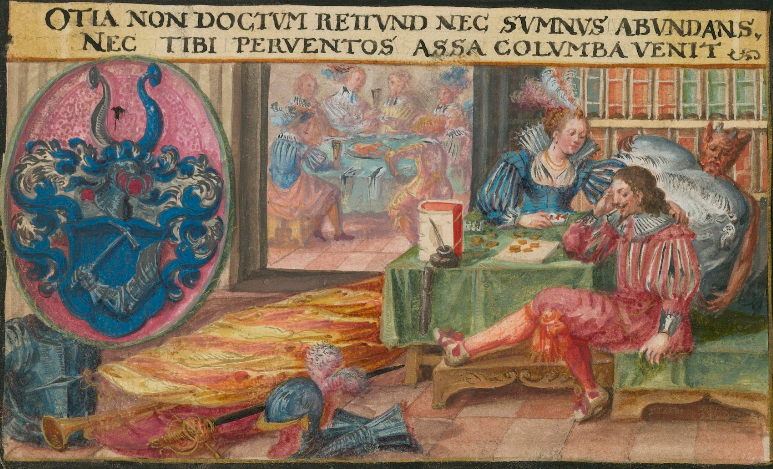 OTIA NON DOCTVM RETIVND NEC SVMNVS ABVNDANS,
NEC TIBI PERVENTOS ASSA COLVMBA VENIT